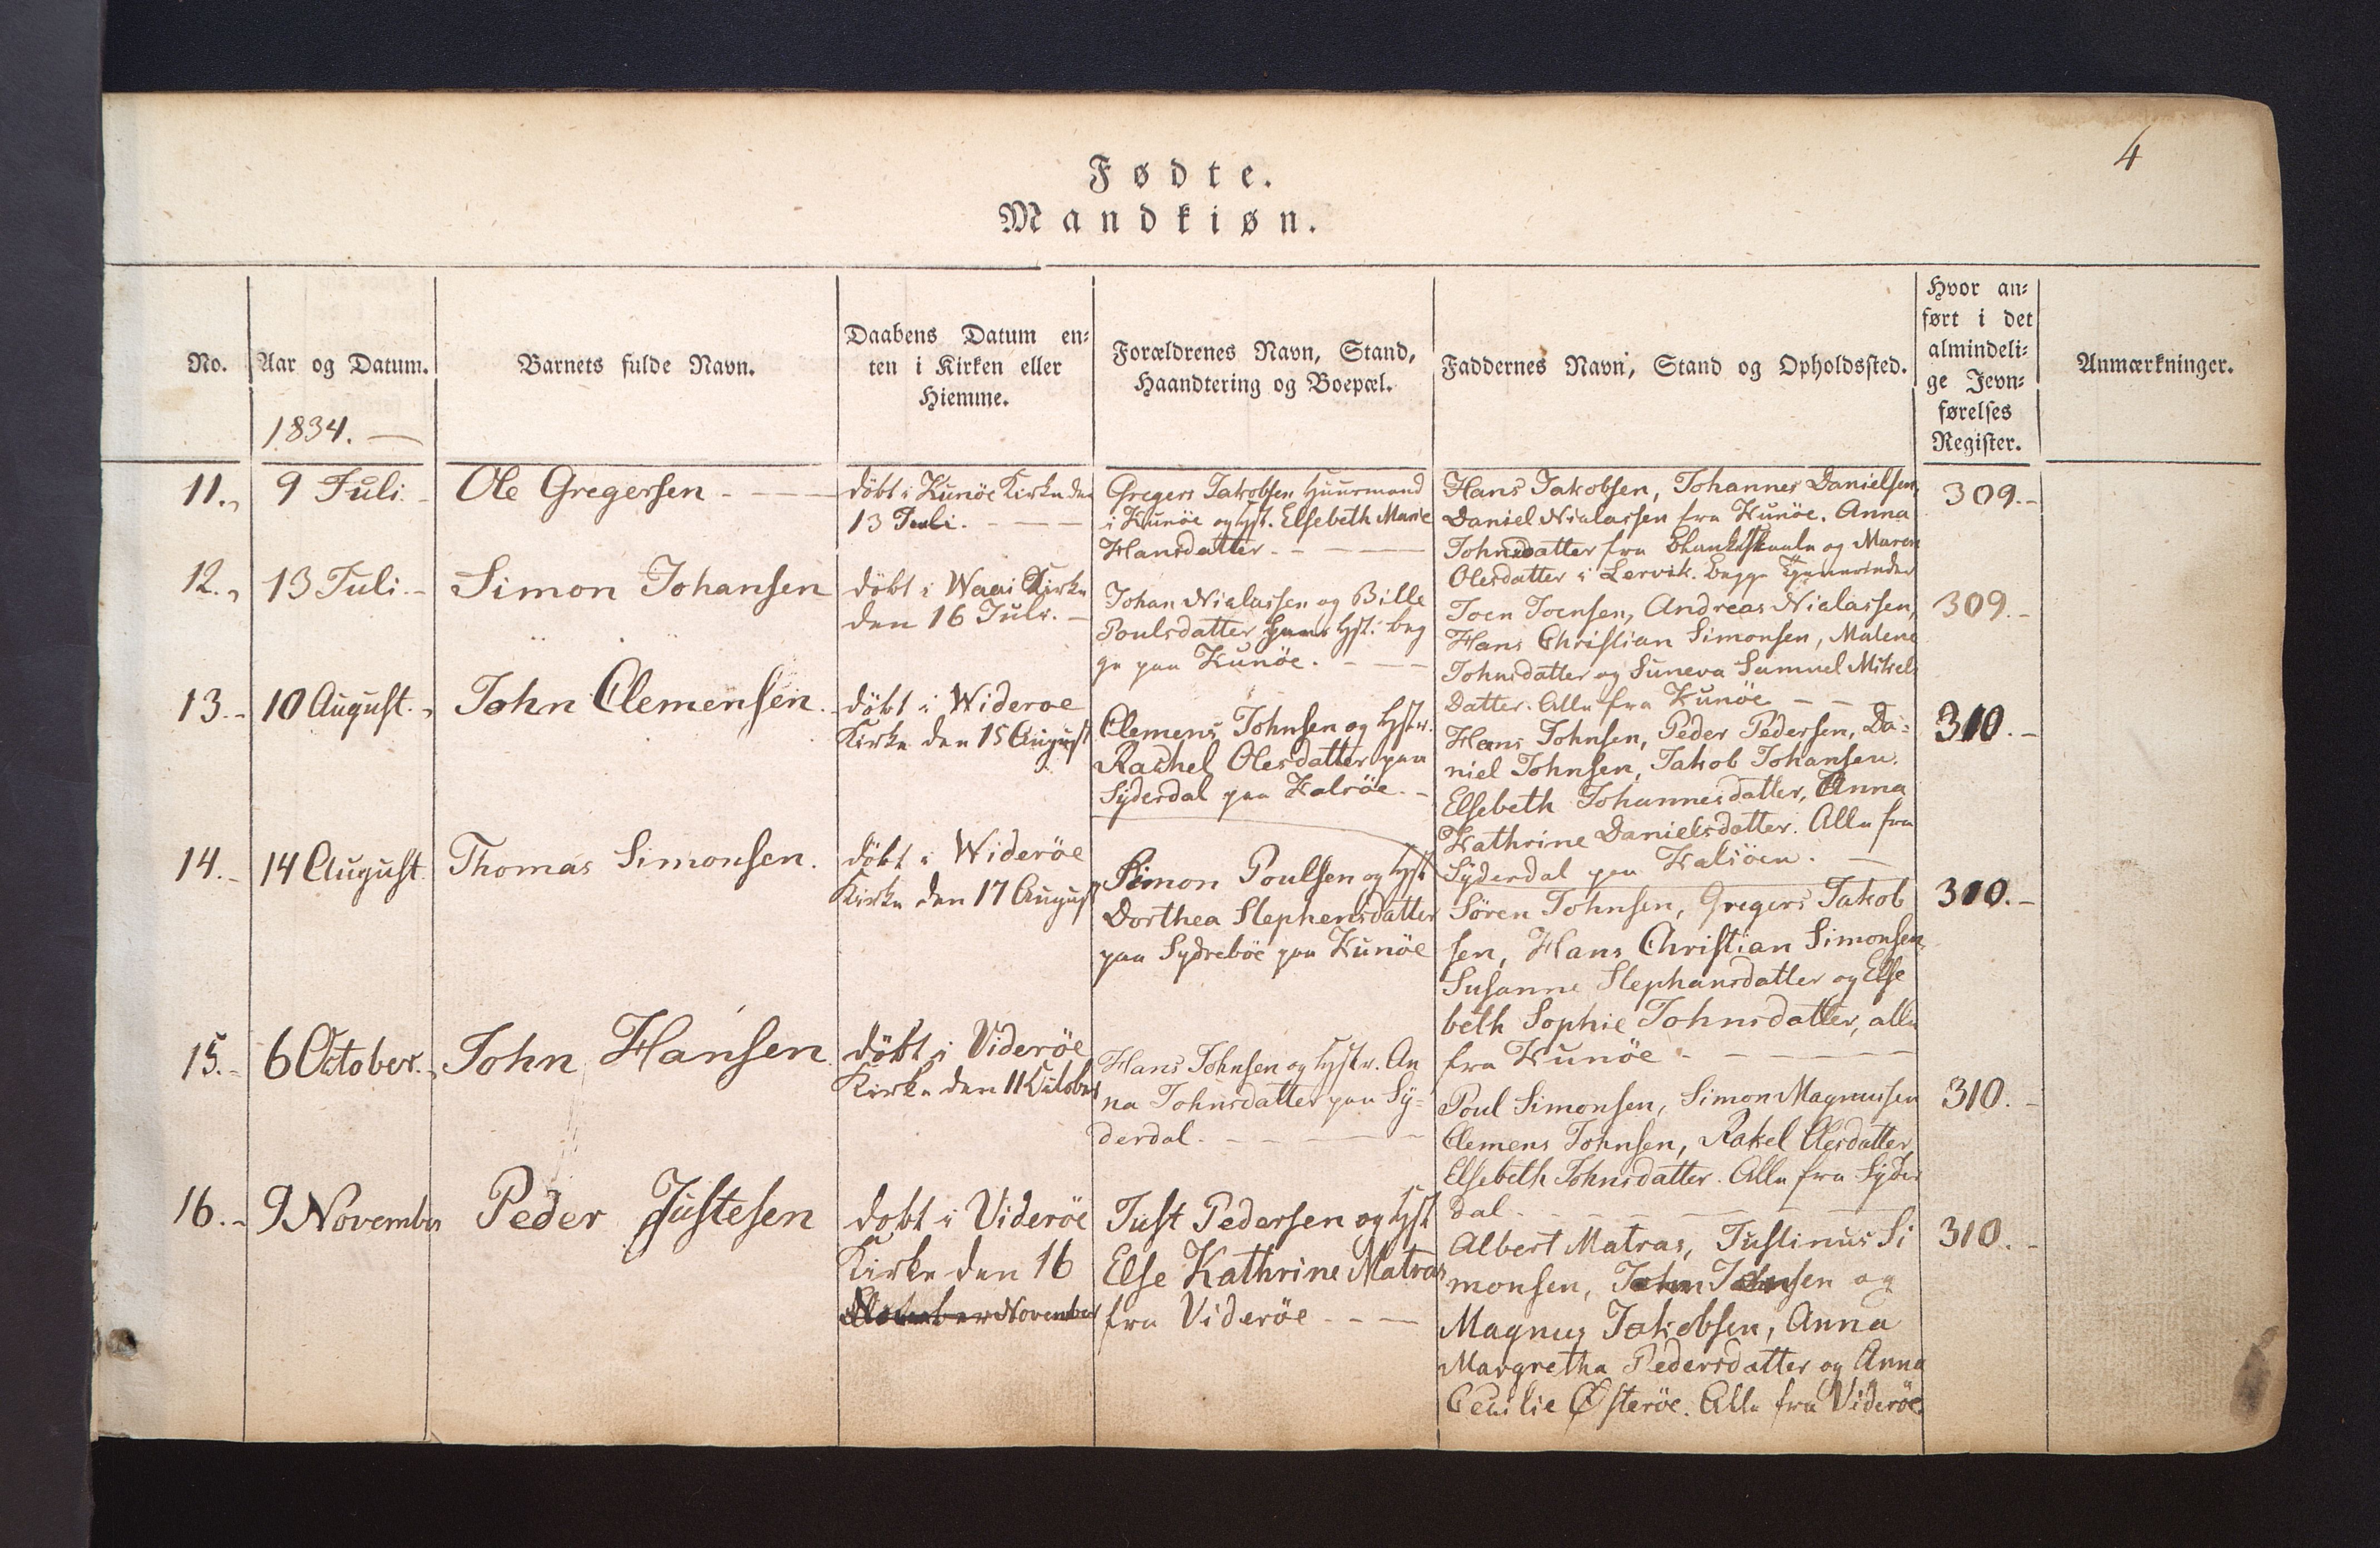 4
Fødte.
Mandkiøn.
No.
Aar og Datum.
1834.
Barnets fulde Navn.
Daabens Datum en-
ten i Kirken eller
Hiemme.
Forældrenes Navn, Stand,
Haandtering og Boepæl.
Faddernes Navn, Stand og Opholdssted.
Hvor an-
ført i det
almindeli-
ge Jevn-
førelses
Register.
Anmærkninger.
11.
9 Juli.
Ole Gregersen
döbt i Kunöe Kirke den
13 Juli.
Gregers Jakobsen Huusmand
i Kunöe og Hst. Elsebeth Marie
Hansdatter
Hans Jakobsen, Johannes Danielsen,
Daniel Nialassen fra Kunöe. Anna
Johnsdatter fra og Maren
Olesdatter i Lervik. begge
309.
12.
13 Juli.
Simon Johansen
döbt i Waai Kirke
den 16 Juli.
Johan Nialassen og Bille
Poulsdatter hans Hst. beg
ge paa Kunöe.
Joen Joensen, Andreas Nialassen,
Hans Christian Simonsen, Malene
Johnsdatter og Suneva Samuel Mikels
Datter. Alle fra Kunöe
309.
13.
10 August.
John Clemensen.
döbt i Wideroe
Kirke den 15 August
Clemens Johnsen og Hstr.
Rachel Olesdatter paa
Syderdal paa Kalsöe.
Hans Johnsen, Peder Pedersen, Da-
niel Johnsen, Jakob Johansen.
Elsebeth Johannesdatter, Anna
Kathrine Danielsdatter. Alle fra
Syderdal paa Kalsöen.
310.
14.
14 August.
Thomas Simonsen.
döbt i Wideröe
Kirke den 17 August
Simon Poulsen og Hst
Dorthea Stephensdatter
paa Sydreböe paa Kunöe
Sören Johnsen, Gregers Jakob
sen, Hans Christian Simonsen
Susanne Stephansdatter og Else
beth Sophie Johnsdatter, alle
fra Kunöe
310.
15.
6 October.
John Hansen
döbt i Videröe
Kirke den 11 October
Hans Johnsen og Hstr. An
na Johnsdatter paa Sy-
derdal.
Poul Simonsen, Simon Magnussen
Clemens Johnsen, Rakel Olesdatter
Elsebeth Johnsdatter. Alle fra Syder
dal
310.
16.
9 November
Peder Justesen
döbt i Videröe
Kirke den 16
November
Just Pedersen og Hst
Else Kathrine Matras
fra Videröe
Albert Matras, Justinus Si
monsen, John Johnsen og
Magnus Jakobsen, Anna
Margretha Pedersdatter og Anna
Cecilie Østeröe. Alle fra Videröe.
310.